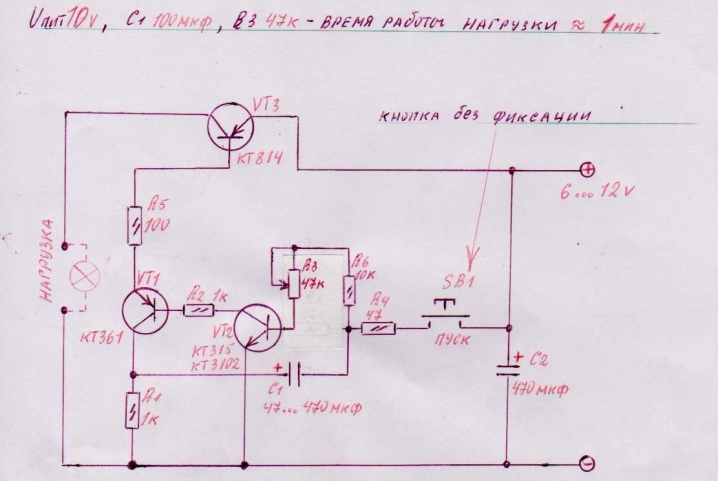 Uпит 10v, C1 100мкф, R3 47к - время работы нагрузки ≈ 1мин.
VT3
кнопка без фиксации
КТ814
6...12v
R5
100
нагрузка
R3
47к
R6
10к
SB1
VT1
R2 1к
R4
47
КТ361
VT2
пуск
КТ315
КТ3102
C1
C2
470мкф
47...470мкф
R1
1к